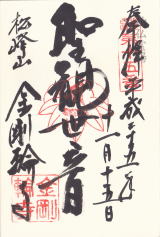 奉拝
平成二十五年
十一月十五日
聖観世音
松峰山
金剛輪寺